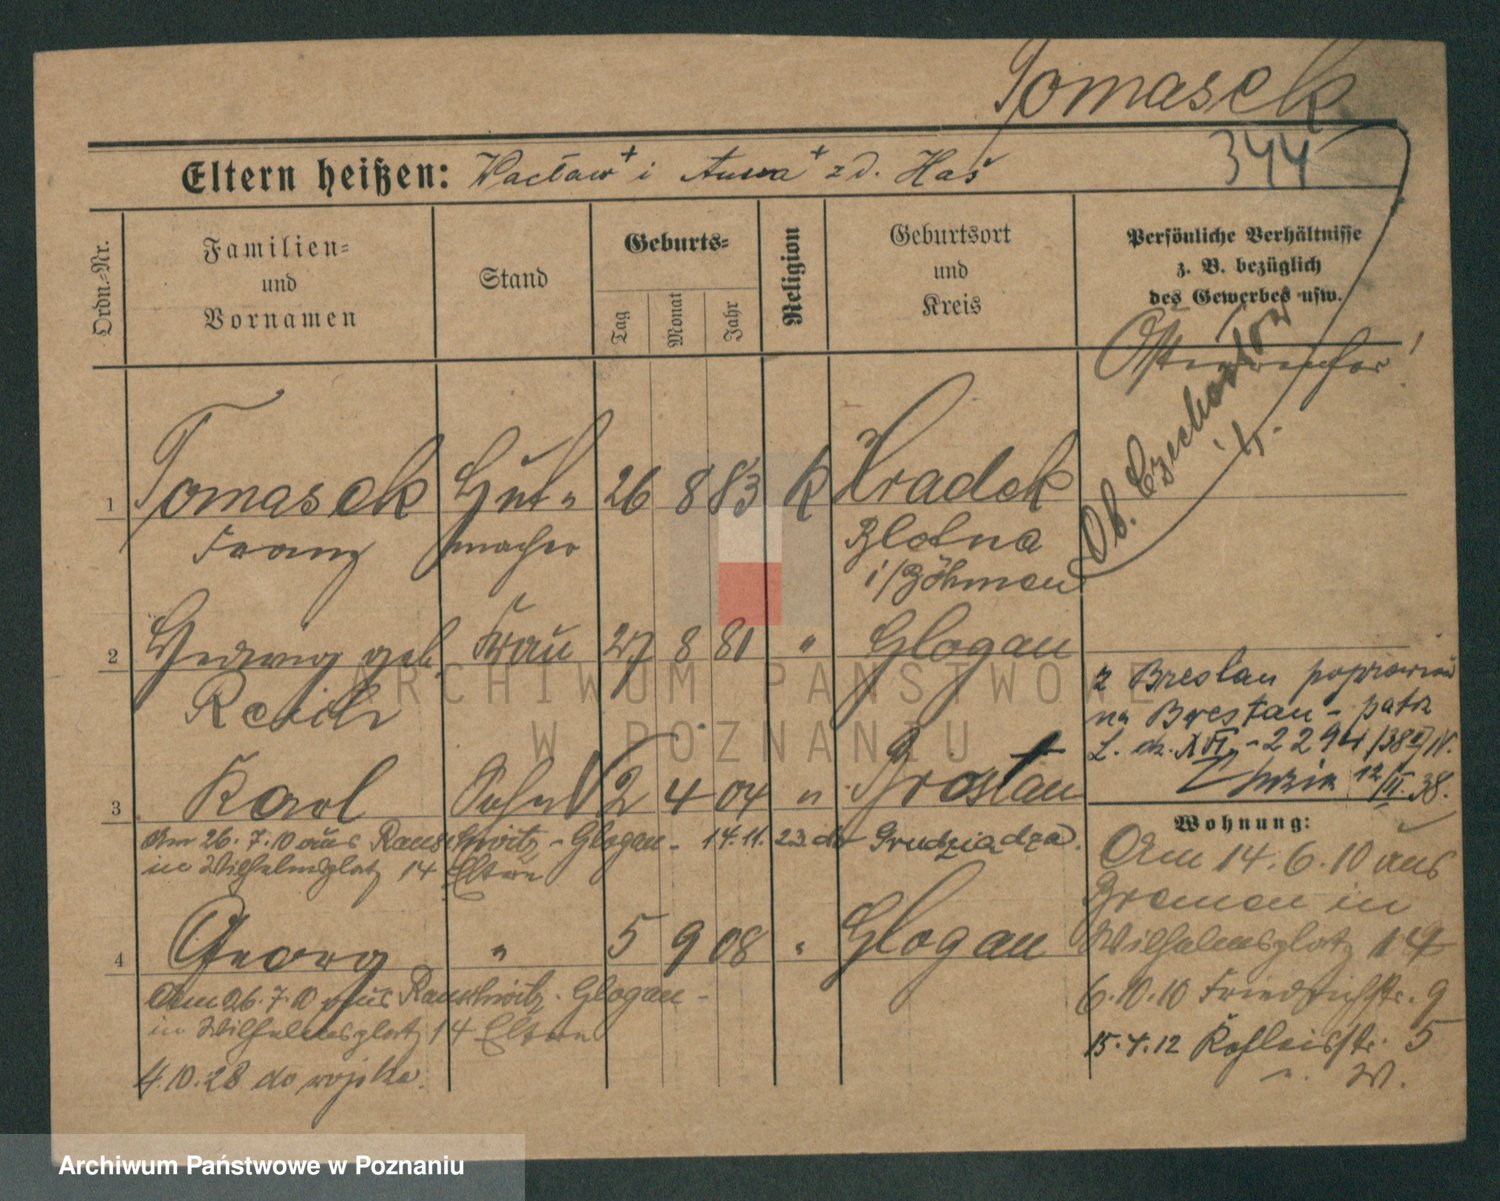 Tomasek
344
Eltern heißen: Wacław + i Anna + z d. Haś
Ordn.-Nr.
Familien- und Vornamen
Stand
Geburts-
Tag
Monat
Jahr
Religion
Geburtsort und Kreis
Persönliche Verhältnisse
z. B. bezüglich
des Gewerbes usw.
Ob. Czechosłow.
1 Tomasek Hut- 26 8 83 K Hradek
Franz macher Zlotna
i/Böhmen
2 Hedwig geb. Frau 27 8 81 " Glogau
Reich
z Breslau
na Brestau - patrz
L. dz. XVI - 2294/38
12/II. 38.
3 Karl Sohn 2 4 04 " Brostau
Am 26.7.10 aus Rauschwitz - Glogau - 14.11.23 do Grudziądza.
in Wilhelmsplatz 14 Eltern
Wohnung:
Am 14.6.10 aus
Bremen in
Wilhelmsplatz 14
4 Georg " 5 9 08 " Glogau
Am 26.7.10 aus Rauschwitz - Glogau -
in Wilhelmsplatz 14 Eltern
4.10.28 do wojska.
6.10.10 Friedrichstr. 9
15.4.12 5
W.
ARCHIWUM PAŃSTWOWE
W POZNANIU
Archiwum Państwowe w Poznaniu